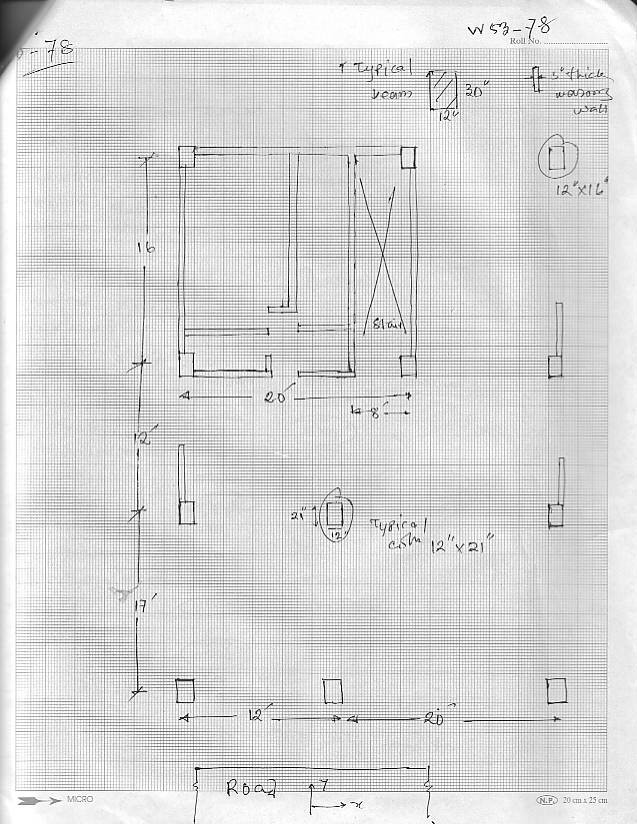 W53-78
-78
Roll No.
Typical
beam
30"
12"
5" thick
masonry
wall
12"X16"
16
Stair
20'
8'
12'
21"
12"
Typical
colm 12"X21"
17'
12'
20'
Road
Y
x
MICRO
N.P. 20 cm x 25 cm